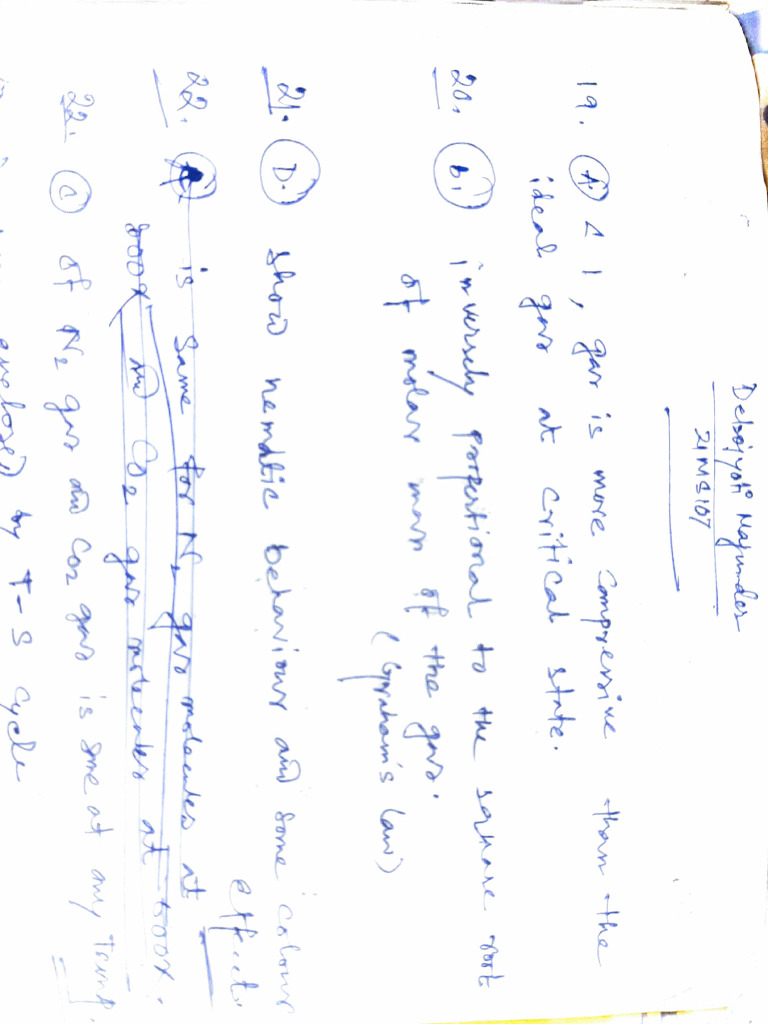 Debojyoti Majumder
21MS107
19. A. < 1, gas is more compressive than the
ideal gas at critical state.
20. b. inversely propertional to the square root
of molar mass of the gas.
(Graham's law)
21. D. show nematic behaviour and some colour
effect.
22. is same for N2 gas molecules at
500K and CO2 gas molecules at 500K.
22. C of N2 gas and CO2 gas is same at any Temp.
by T-S cycle